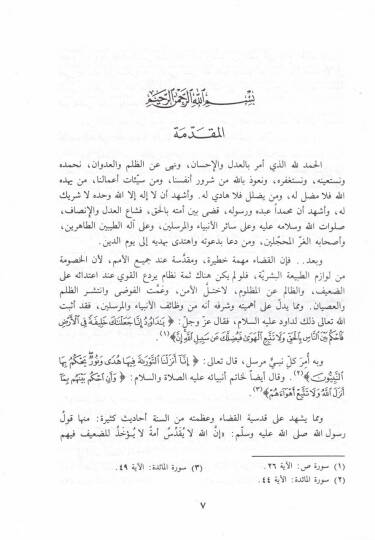 بِسْمِ اللهِ الرَّحْمٰنِ الرَّحِيمِ
المقدّمة
الحمد لله الذي أمر بالعدل والإحسان، ونهى عن الظلم والعدوان، نحمده
ونستعينه، ونستغفره، ونعوذ بالله من شرور أنفسنا، ومن سيّئات أعمالنا، من يهده
الله فلا مضل له، ومن يضلل فلا هادي له. وأشهد أن لا إله إلا الله وحده لا شريك
له، وأشهد أن محمداً عبده ورسوله، قضى بين أمته بالحق، فشاع العدل والإنصاف،
صلوات الله وسلامه عليه وعلى سائر الأنبياء والمرسلين، وعلى آله الطيبين الطاهرين،
وأصحابه الغرّ المحجّلين، ومن دعا بدعوته واهتدى بهديه إلى يوم الدين.
وبعد.. فإن القضاء مهمة خطيرة، ومقدَّسة عند جميع الأمم، لأن الخصومة
من لوازم الطبيعة البشريّة، فلو لم يكن هناك ثمة نظام يردع القوي عند اعتدائه على
الضعيف، والظالم عن المظلوم، لاختلّ الأمن، وعمَّت الفوضى وانتشر الظلم
والعصيان. ومما يدلّ على أهميته وشرفه أنه من وظائف الأنبياء والمرسلين، فقد أثبت
الله تعالى ذلك لداود عليه السلام، فقال عزّ وجلّ: ﴿ يَٰدَاوُۥدُ إِنَّا جَعَلْنَٰكَ خَلِيفَةً فِى ٱلْأَرْضِ
فَٱحْكُم بَيْنَ ٱلنَّاسِ بِٱلْحَقِّ وَلَا تَتَّبِعِ ٱلْهَوَىٰ فَيُضِلَّكَ عَن سَبِيلِ ٱللَّهِ إِنَّ﴾(١).
وبه أمِرَ كلّ نبيّ مرسل، قال تعالى: ﴿ إِنَّآ أَنزَلْنَا ٱلتَّوْرَىٰةَ فِيهَا هُدًى وَنُورٌ يَحْكُمُ بِهَا
ٱلنَّبِيُّونَ﴾(٢). وقال أيضاً لخاتم أنبيائه عليه الصلاة والسلام: ﴿ وَأَنِ ٱحْكُم بَيْنَهُم بِمَآ
أَنزَلَ ٱللَّهُ وَلَا تَتَّبِعْ أَهْوَآءَهُمْ﴾(٣).
ومما يشهد على قدسية القضاء وعظمته من السنة أحاديث كثيرة: منها قولُ
رسول الله صلى الله عليه وسلّم: «إنَّ الله لا يُقَدِّسُ أمةً لا يُؤخَذُ للضعيف فيهم
(١) سورة ص: الآية ٢٦. (٣) سورة المائدة: الآية ٤٩.
(٢) سورة المائدة: الآية ٤٤.
٧